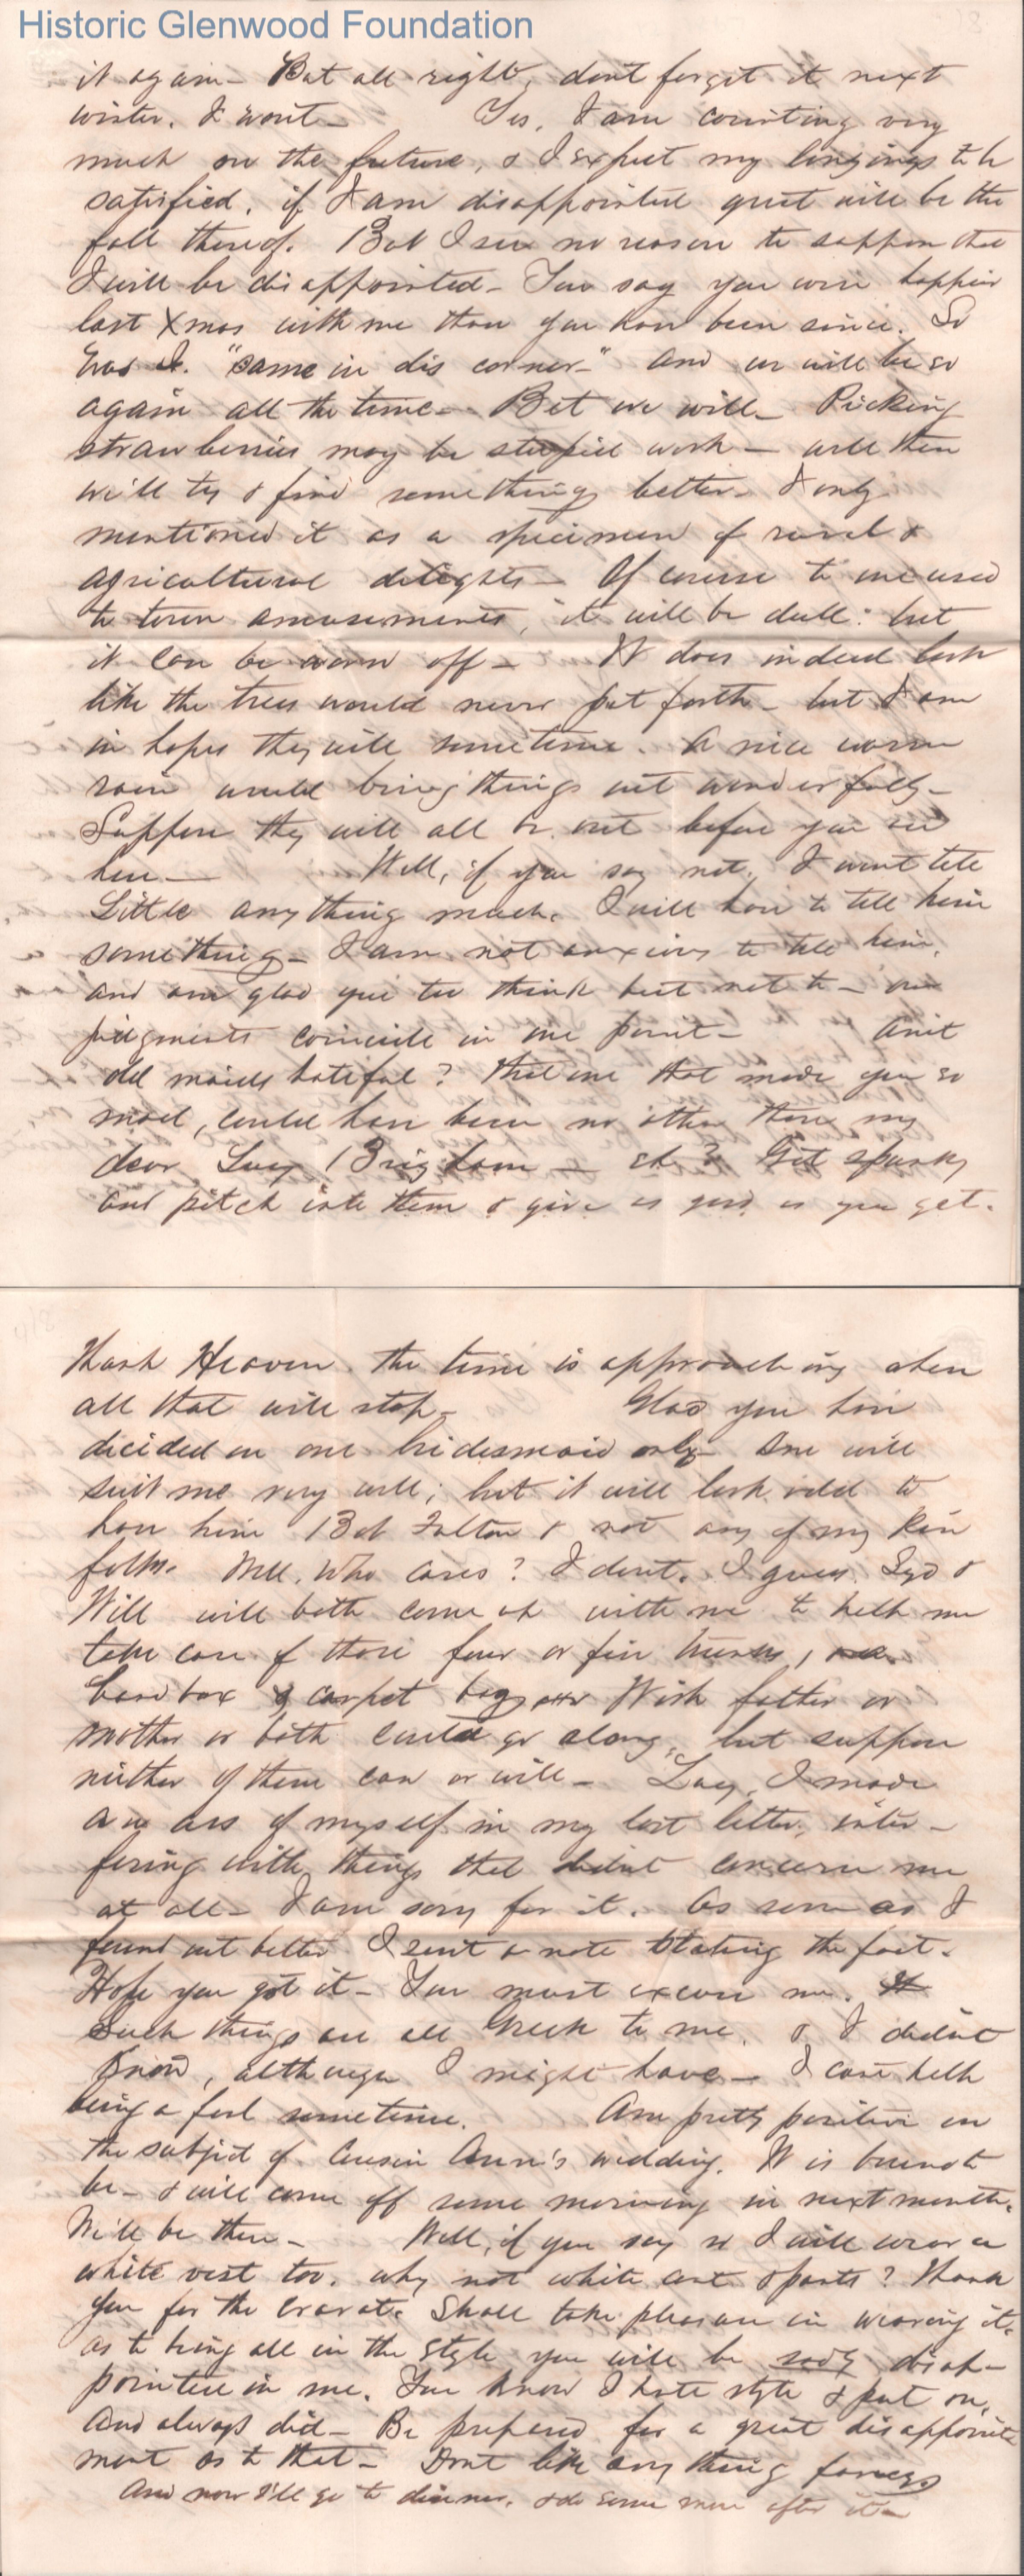 Historic Glenwood Foundation
it again - But all right, dont forget it next
winter. I wont - Yes, I am counting very
much on the future, & I expect my longings to be
satisfied. if I am disappointed great will be the
fall thereof. But I see no reason to suppose that
I will be disappointed - You say you were happier
last Xmas with me than you have been since. So
was I. "same in dis corner -" and we will be so
again all the time - Bet we will - Picking
strawberries may be stupid work - well then
we'll try & find something better - I only
mentioned it as a specimen of rural &
agricultural delights - Of course to one used
to town amusements, it will be dull: but
it can be worn off - It does indeed look
like the trees would never put forth - but I am
in hopes they will sometime. A nice warm
rain would bring things out wonderfully -
Suppose they will all be out before you see
here - Well, if you say not, I wont tell
Little anything much. I will have to tell him
something - I am not anxious to tell him,
and am glad you too think best not to - our
judgments coincide in one point - Aint
old maids hateful? That one that made you so
mad, could have been no other than my
dear Lucy Brigham - eh? Get spunky
and pitch into them & give as good as you get.
Thank Heaven the time is approaching when
all that will stop - Glad you have
decided on one bridesmaid only - One will
suit me very well; but it will look odd to
have him Bob Fulton & not any of my kin
folks. Well, who cares? I dont. I guess Syd &
Will will both come up with me to help me
take care of those four or five trunks,
band box & carpet bags Wish father or
mother or both could go along, but suppose
neither of them can or will - Lucy, I made
an ass of myself in my last letter, inter -
fering with things that didnt concern me
at all - I am sorry for it. As soon as I
found out better I sent a note stating the fact.
Hope you got it - You must excuse me.
Such things are all Greek to me, & I didnt
know, although I might have - I cant help
being a fool sometime. Am pretty positive on
the subject of Cousin Ann's wedding. It is bound to
be - & will come off some morning in next month.
We'll be there - Well, if you say so I will wear a
white vest too. why not white coat & pants? Thank
you for the cravat. Shall take pleasure in wearing it.
as to being all in the style you will be sadly disap -
pointed in me. You know I hate style & put on,
And always did - Be prepared for a great disappoint
ment as to that - Dont like any thing foreign
And now I'll go to dinner, & do some more after it -